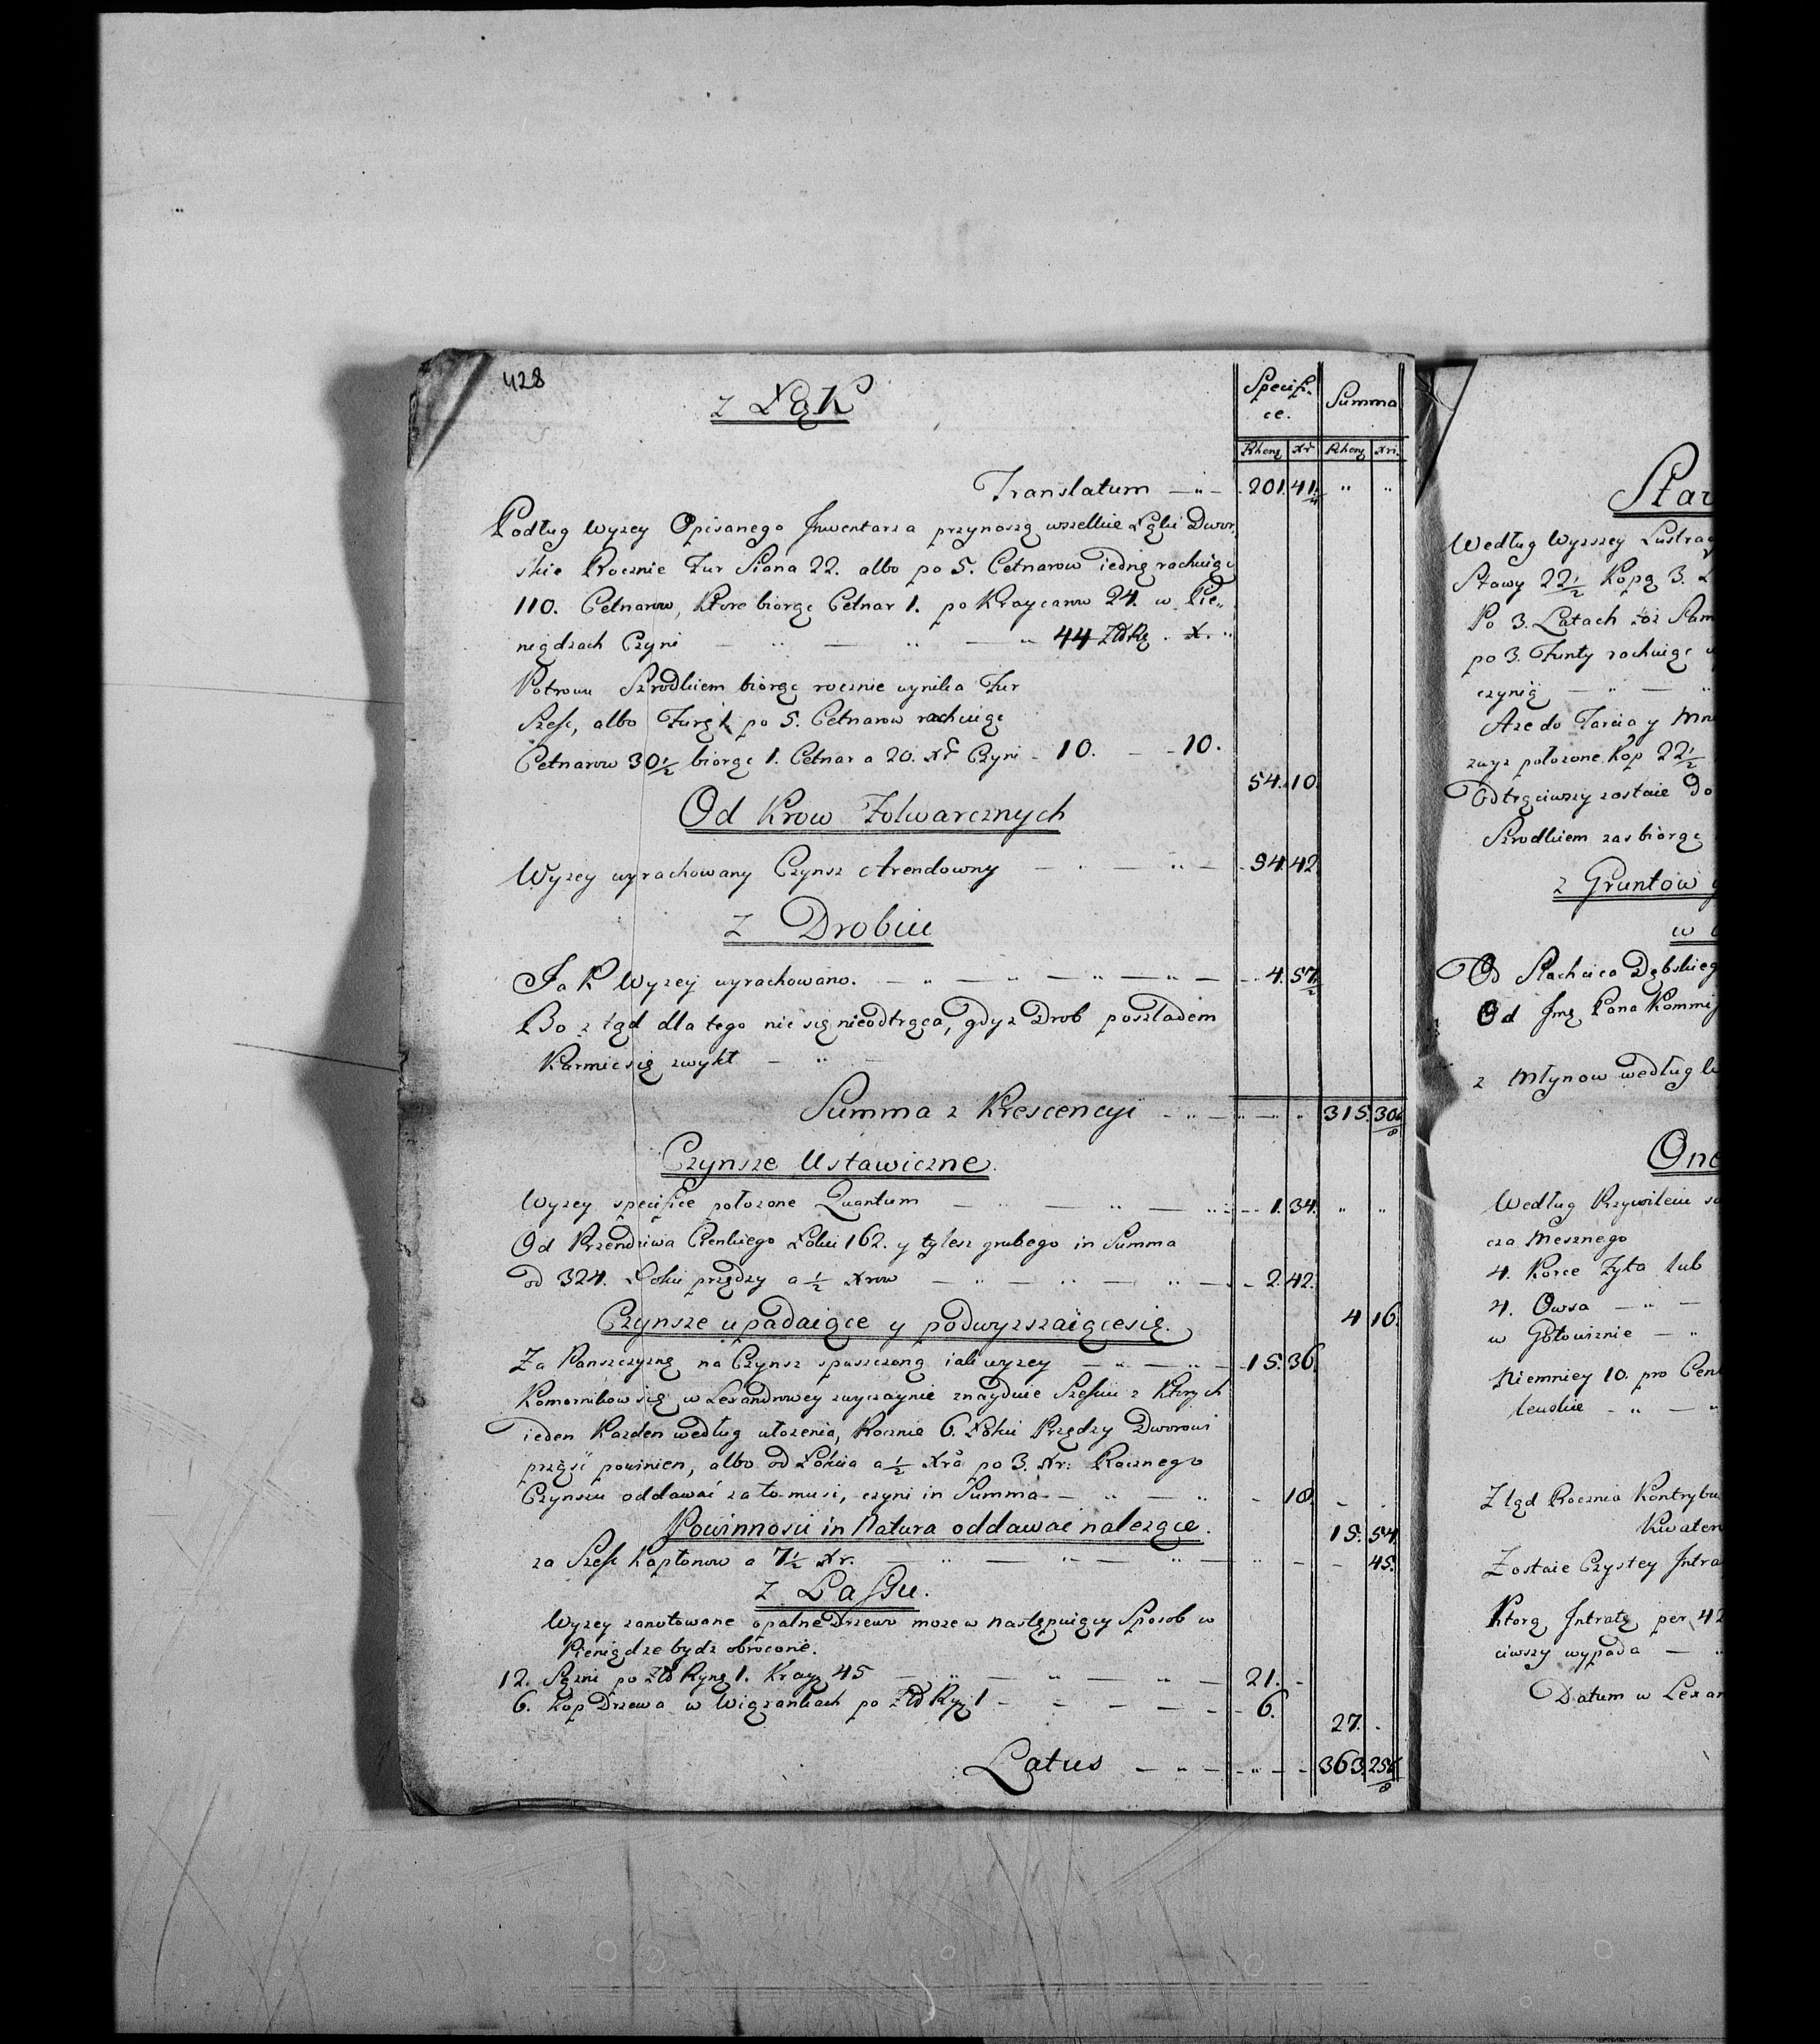 428
z Łąk
Specifi-
ce. Summa
Rheng Xr Rheng Xri
Translatum — „ — 201. 41 „ „
Podług Wyzey Opisanego Inwentarza przynoszą wszelkie Łąki Dwor„
skie Rocznie Fur Siana 22. albo po 5. Cetnarow iedną rachuiąc
110. Cetnarow, Ktore biorąc Cetnar 1. po Kraycarow 24. w Pie„
niądzach Czyni — „ — „ — „ 44 Zł Rg . X. „
Potrowu Szrodkiem biorąc rocznie wynika Fur
Szesc, albo Furę 1. po 5. Cetnarow rachuiąc
Cetnarow 30 1/2 biorąc 1. Cetnar a 20. Xr Czyni - 10. — - 10.
54. 10.
Od Krow Folwarcznych
Wyzey wyrachowany Czynsz Arendowny — „ — „ — 54. 42.
Z Drobiu
Jak Wyzey wyrachowano. — „ — „ — „ — „ — 4. 57 1/2
Bo z tąd dla tego nic się nieodtrąca, gdyz Drob poszladem
Karmic się zwykł — „ —
Summa z Krescencyi — „ — „ — „ 315. 30
Czynsze Ustawiczne.
Wyzey specifice połozone Quantum — „ — „ — „ 1. 34. „ „
Od Przendziwa Cienkiego Łokci 162. y tylesz grubego in Summa
od 324. Łokci przędzy a 1/2 Xrow — „ — „ — „ — 2. 42.
4 16.
Czynsze upadaiące y podwyzszaiące się.
Za Panszczyznę na Czynsz spuszczoną iak wyzey — „ — „ — 15. 36.
Komornikow się w Lexandrowey zwyczaynie znayduie Szesciu z Ktorych
ieden Kazden według ułozenia, Rocznie 6. Łokci Przędzy Dworowi
prząsć powinien, albo od Łokcia a 1/2 Xra po 3. Xr: Rocznego
Czynszu oddawać za to musi, czyni in Summa — „ — „ - 18. - .
15. 54.
Powinnosci in Natura oddawac nalezące.
za Szesc Kapłonow a 7 1/2 Xr. — „ — „ — „ — „ — — 45.
z Lassu.
Wyzey zanotowane opalne Drzewo moze w następuiący Sposob w
Pieniądze bydz obrocone.
12. Sązni po Zł Ryng 1. Krayc 45 — „ — „ — „ — 21. -
6. Kop Drzewa w Wiązankach po Zł Ryg 1 - - - - - 6.
27. .
Latus — „ — „ — 363. 25
Star
Według Wyzszey Lustrac
Stawy 22 1/2 Kopą 3.
Po 3. Latach toz Sam
po 3. Funty rachuiąc
czynią — „ — „
A ze do Tarcia y
zwyz połozone Kop 22 1/2
Odtrąciwszy zostaie do
Szrodkiem zas biorąc
z Gruntow
w
Od Slachcica Dębskieg
Od Jmę Pana Kommi
z Młynow według
One
Według Przywileiu
cza Mesznego
4. Korce Zyta lub
4. Owsa — „ —
w Gotowiznie — „
Niemniey 10. pro Cen
— „ — „
Z tąd Roczna Kontrybu
Kwater
Zostaie Czystey Intra
Ktorą Intratę per 42
ciwszy wypada — „
Datum w Lexan